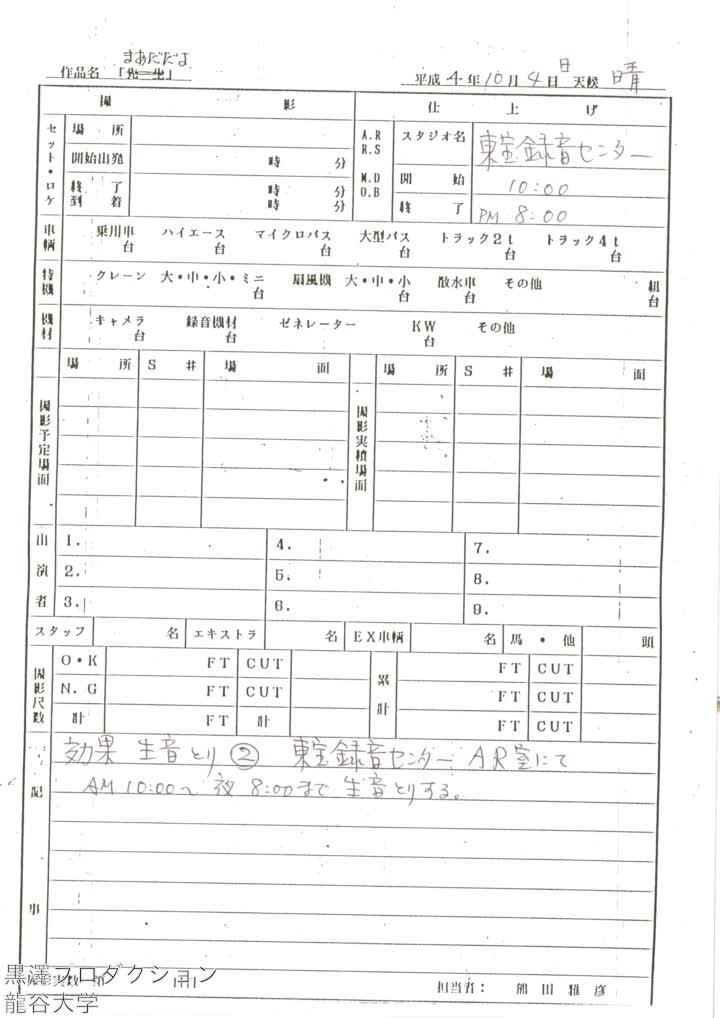 まあだだよ
作品名 「先生」 平成4年10月4日 日 天候 晴
撮影 仕上げ
セット・ロケ 場所 A.R R.S M.D O.B スタジオ名 東宝録音センター
開始出発 時 分 開始 10:00
終了 時 分 終了 PM 8:00
到着 時 分
車輌 乗用車 台 ハイエース 台 マイクロバス 台 大型バス 台 トラック2t 台 トラック4t 台
特機 クレーン 大・中・小・ミニ 台 扇風機 大・中・小 台 散水車 台 その他 組 台
機材 キャメラ 台 録音機材 台 ゼネレーター KW 台 その他
撮影予定場面 場所 S# 場面 撮影実績場面 場所 S# 場面
出演者 1. 4. 7.
2. 5. 8.
3. 6. 9.
スタッフ 名 エキストラ 名 EX車輌 名 馬・他 頭
撮影尺数 O・K FT CUT 累計 FT CUT
N.G FT CUT FT CUT
計 FT 計 FT CUT
記事
効果 生音とり② 東宝録音センター AR室にて
AM 10:00〜夜 8:00まで 生音とりする。
撮影実数 第
担当者: 熊田雅彦
黒澤プロダクション
龍谷大学